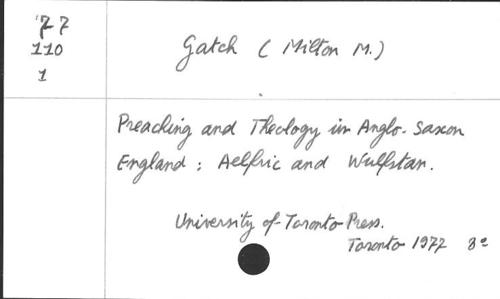 77
110
1
Gatch ( Milton M.)
Preaching and Theology in Anglo-Saxon
England : Aelfric and Wulfstan.
University of Toronto Press.
Toronto 1977 8º